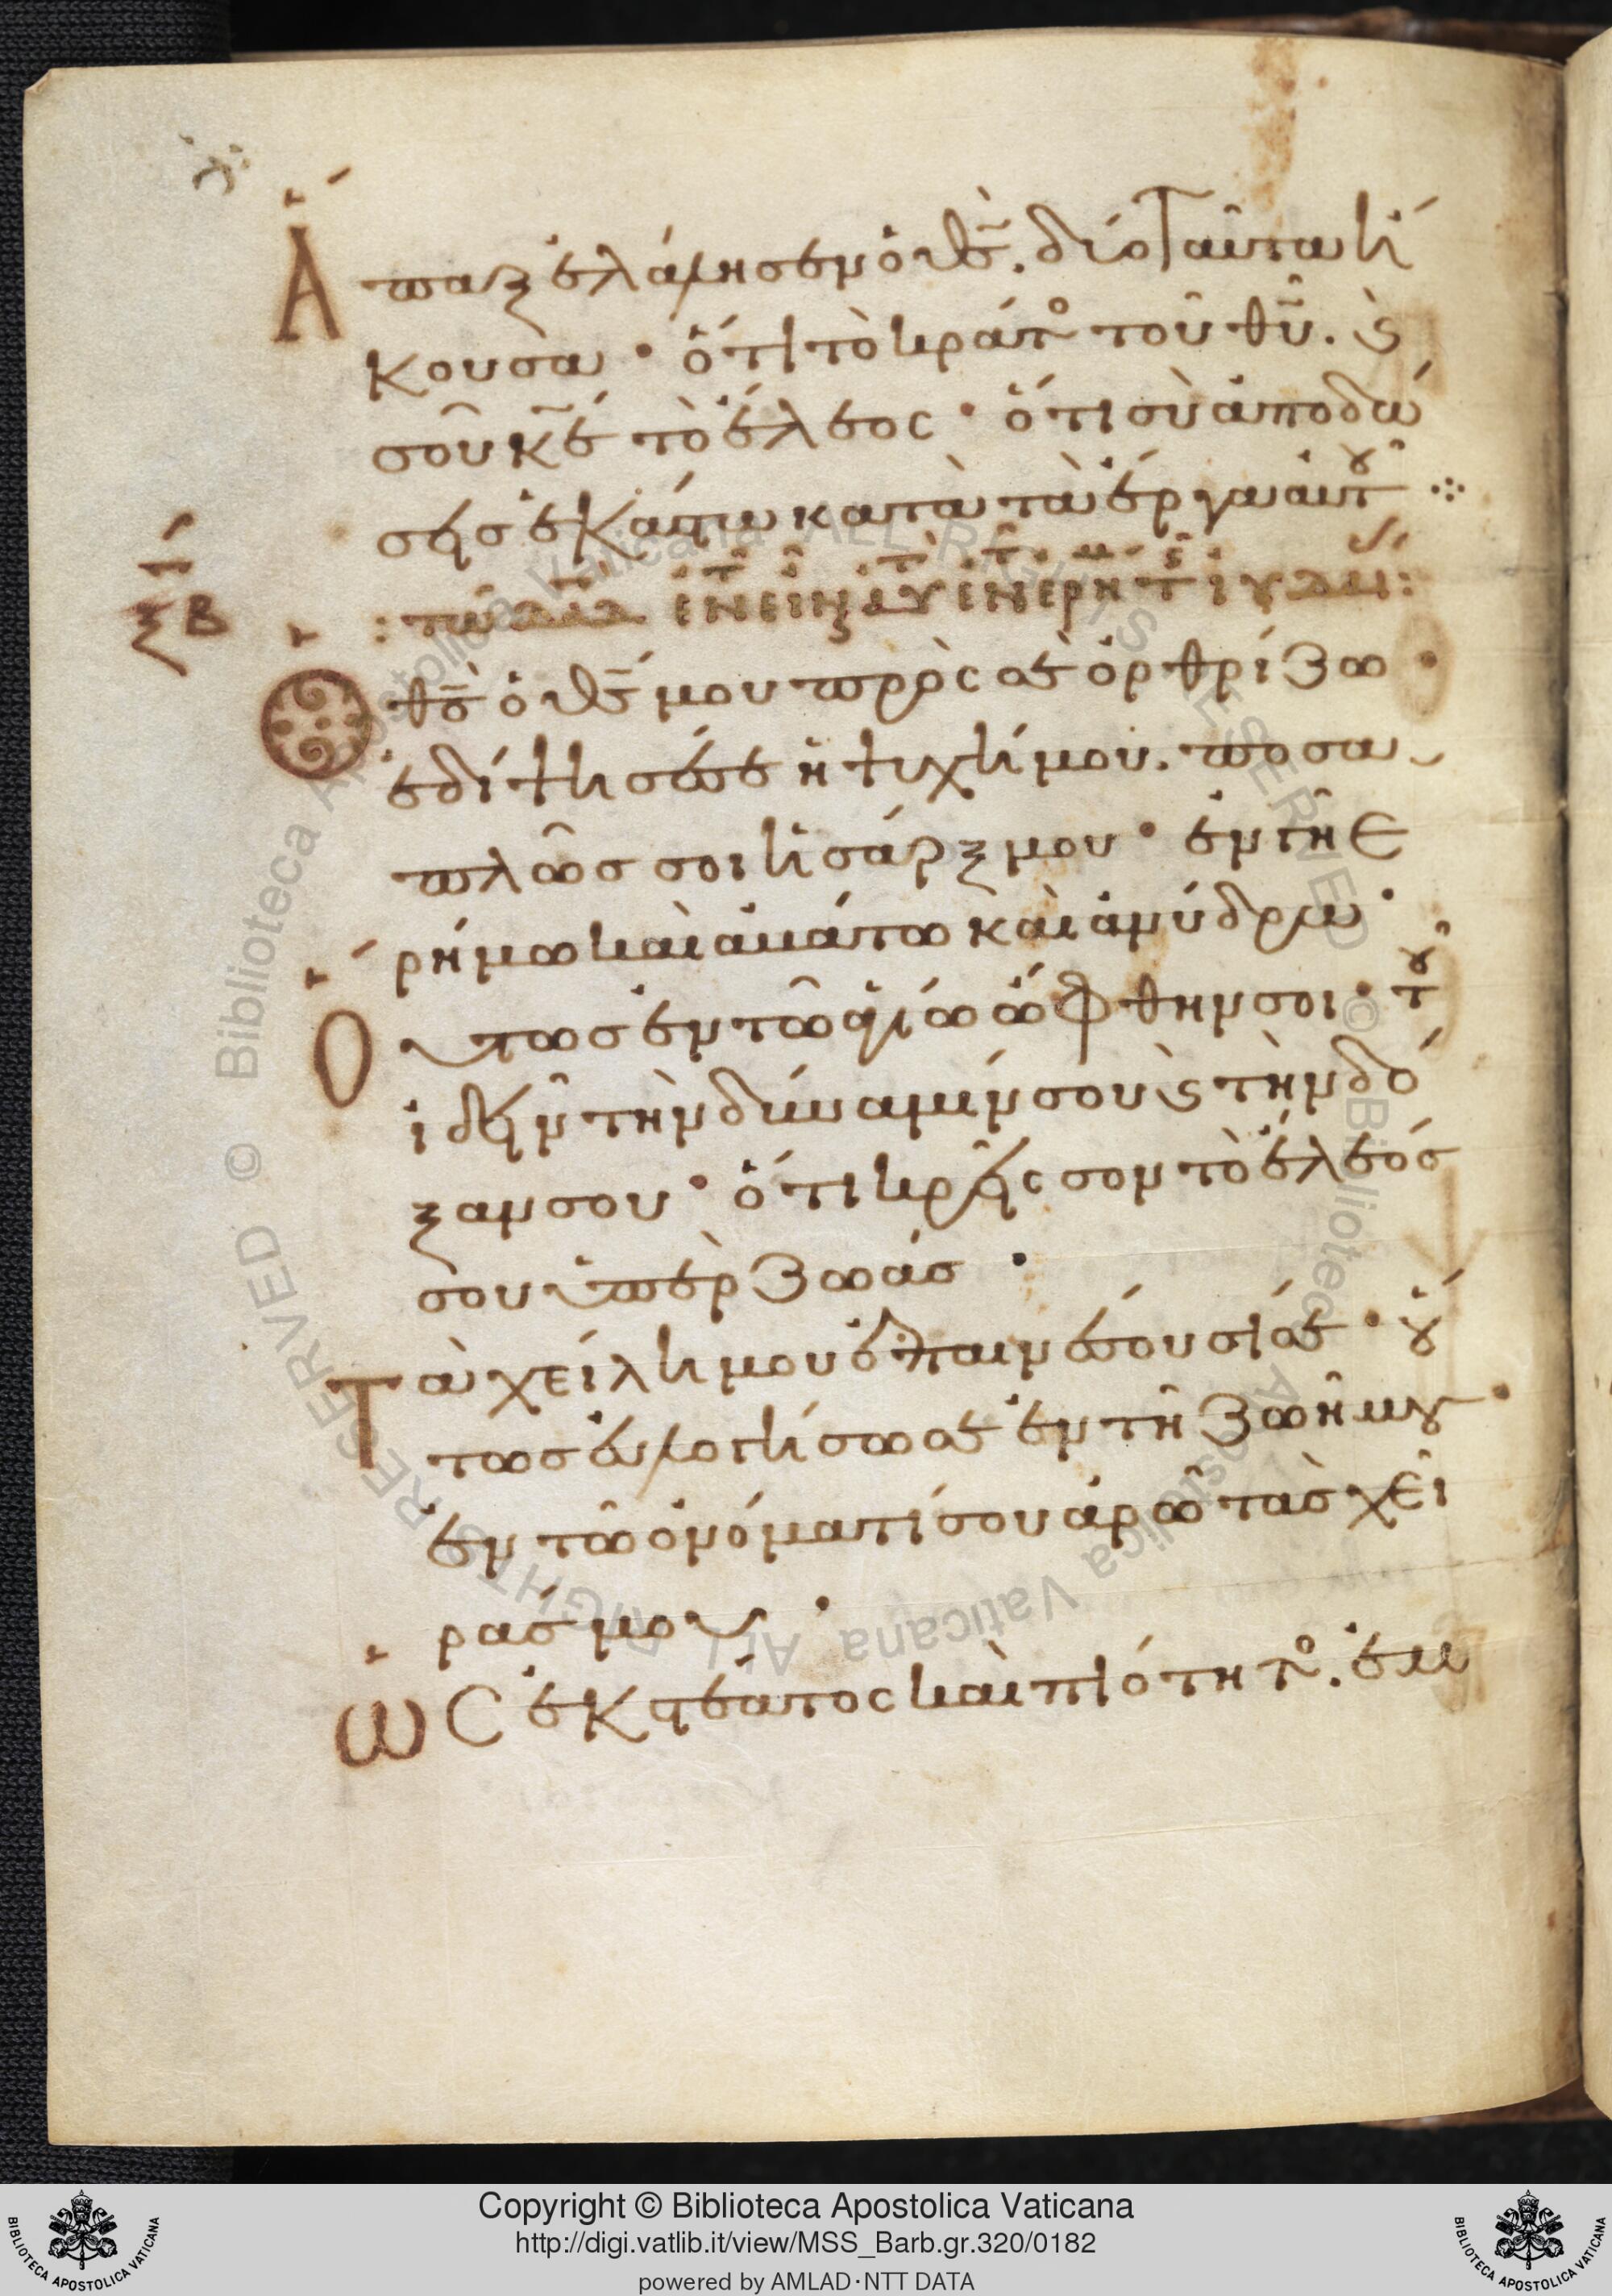 Ἅπαξ ἐλάλησεν ὁ θς̄. δύο ταῦτα ἤ
κουσα · ὅτι τὸ κράτος τοῦ θῦ. ϛ
σοῦ κε̄ τὸ ἔλεος · ὅτι σὺ ἀποδώ
σεις ἑκάστω κατὰ τὰ ἔργα αὐτοῦ ⁘
ξβ
Ὁ θς̄ ὁ θς̄ μου πρὸς σὲ ὀρθρίζω ·
ἐδίψησέ σε ἡ ψυχή μου. ποσα
πλῶς σοι ἡ σάρξ μου · ἐν γῆ ἐ
ρήμω καὶ ἀβάτω καὶ ἀνύδρω ·
Οὕτως ἐν τῶ ἁγίω ὤφθην σοι · τοῦ
ἰδεῖν τὴν δύναμίν σου ϛ τὴν δό
ξαν σου · ὅτι κρεῖσσον τὸ ἔλεός
σου ὑπὲρ ζωάς ·
Τὰ χείλη μου ἐπαινέσουσί σε · οὕ
τως εὐλογήσω σε ἐν τῆ ζωῆ μου ·
ἐν τῶ ὀνόματί σου ἀρῶ τὰς χεῖ
ράς μου ·
Ὡς ἐκ στέατος καὶ πιότητος. ἐμ
Copyright © Biblioteca Apostolica Vaticana
http://digi.vatlib.it/view/MSS_Barb.gr.320/0182
powered by AMLAD·NTT DATA
BIBLIOTECA APOSTOLICA VATICANA
BIBLIOTECA APOSTOLICA VATICANA